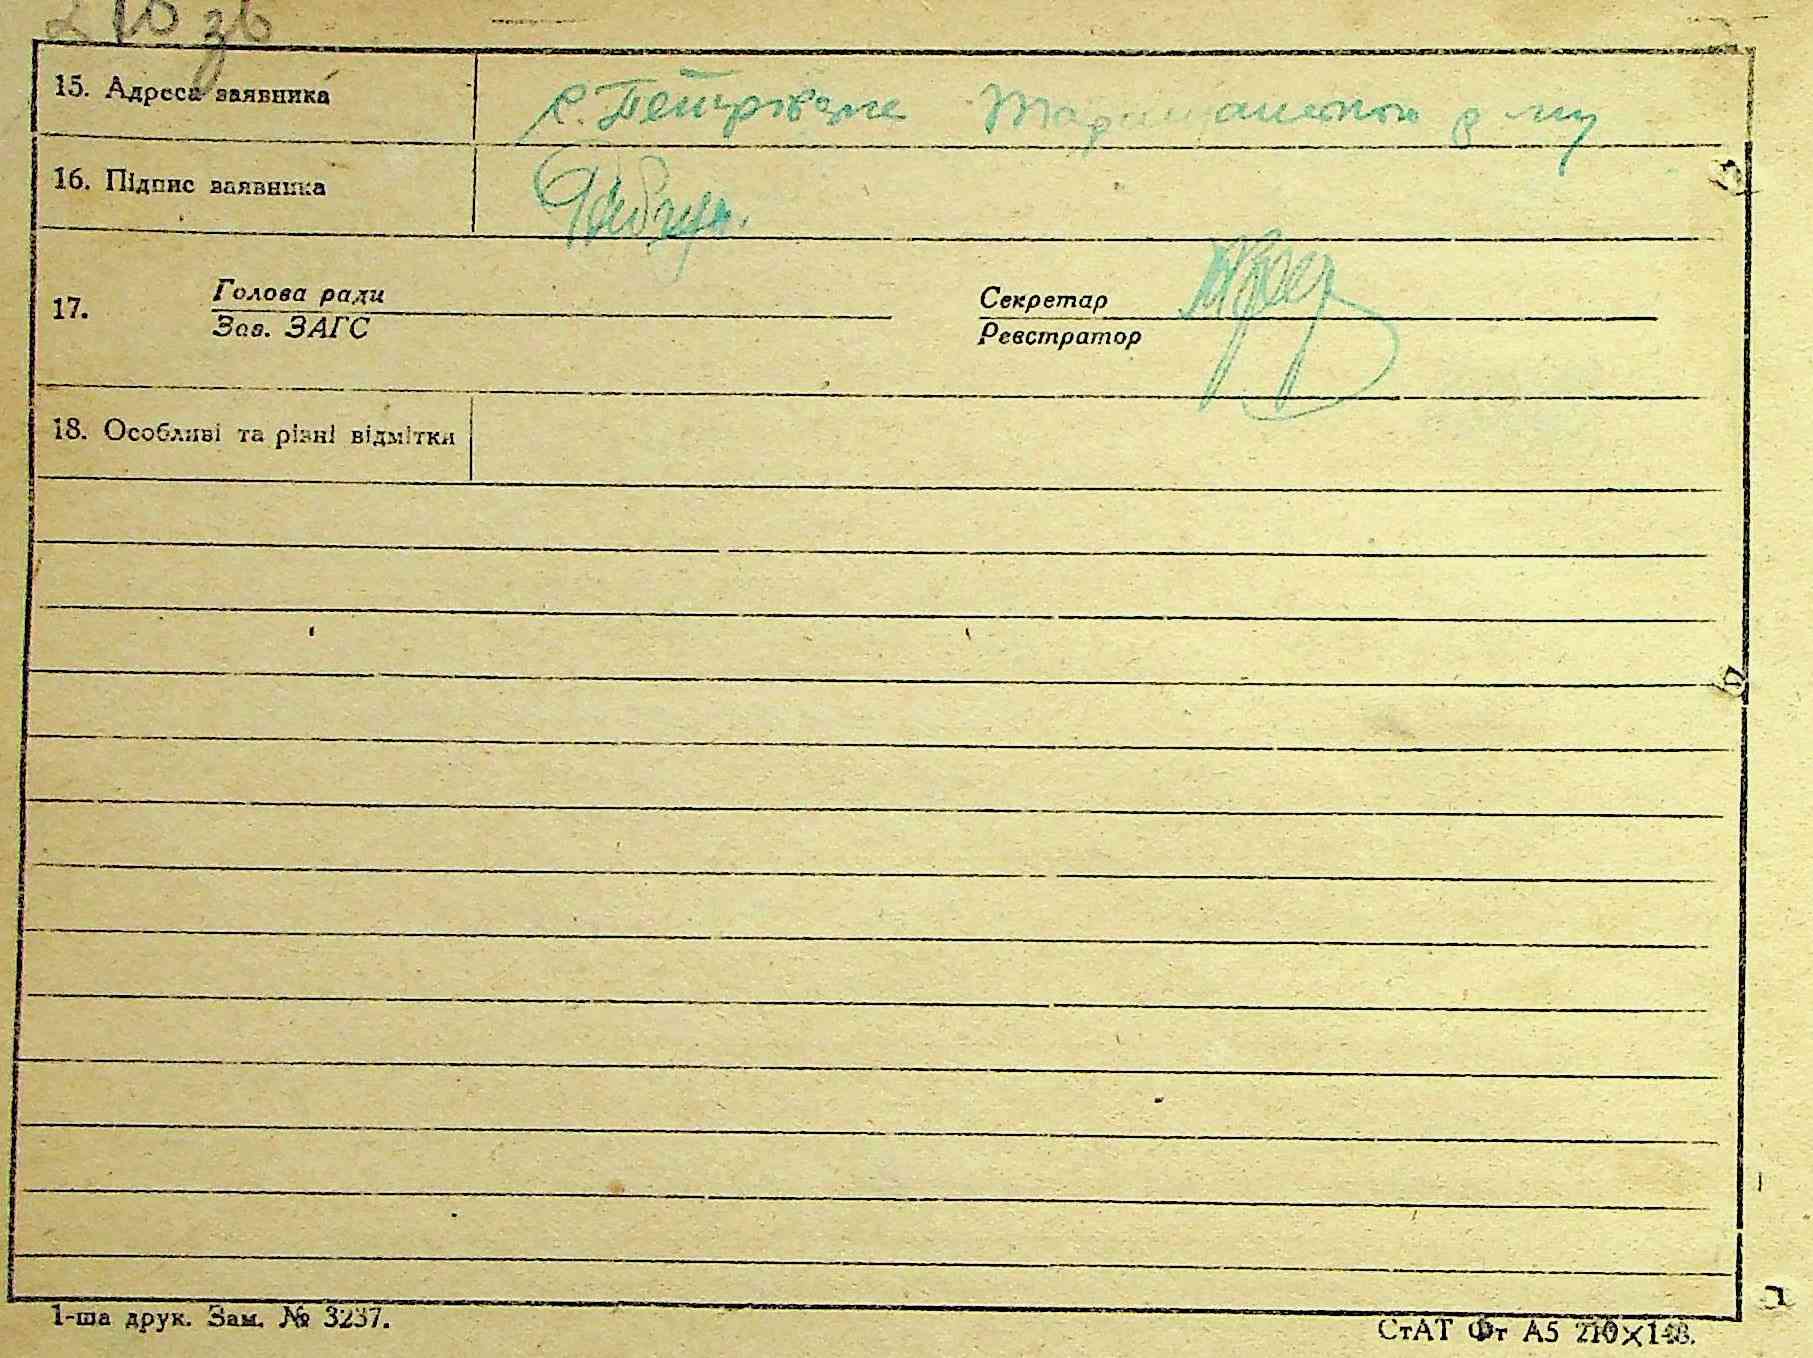 210 зв
15. Адреса заявника с. Петрівка Таращанського р-ну
16. Підпис заявника
17. Голова ради Секретар
Зав. ЗАГС Реєстратор
18. Особливі та різні відмітки
1-ша друк. Зам. № 3237.
СтАТ Фт А5 210×148.